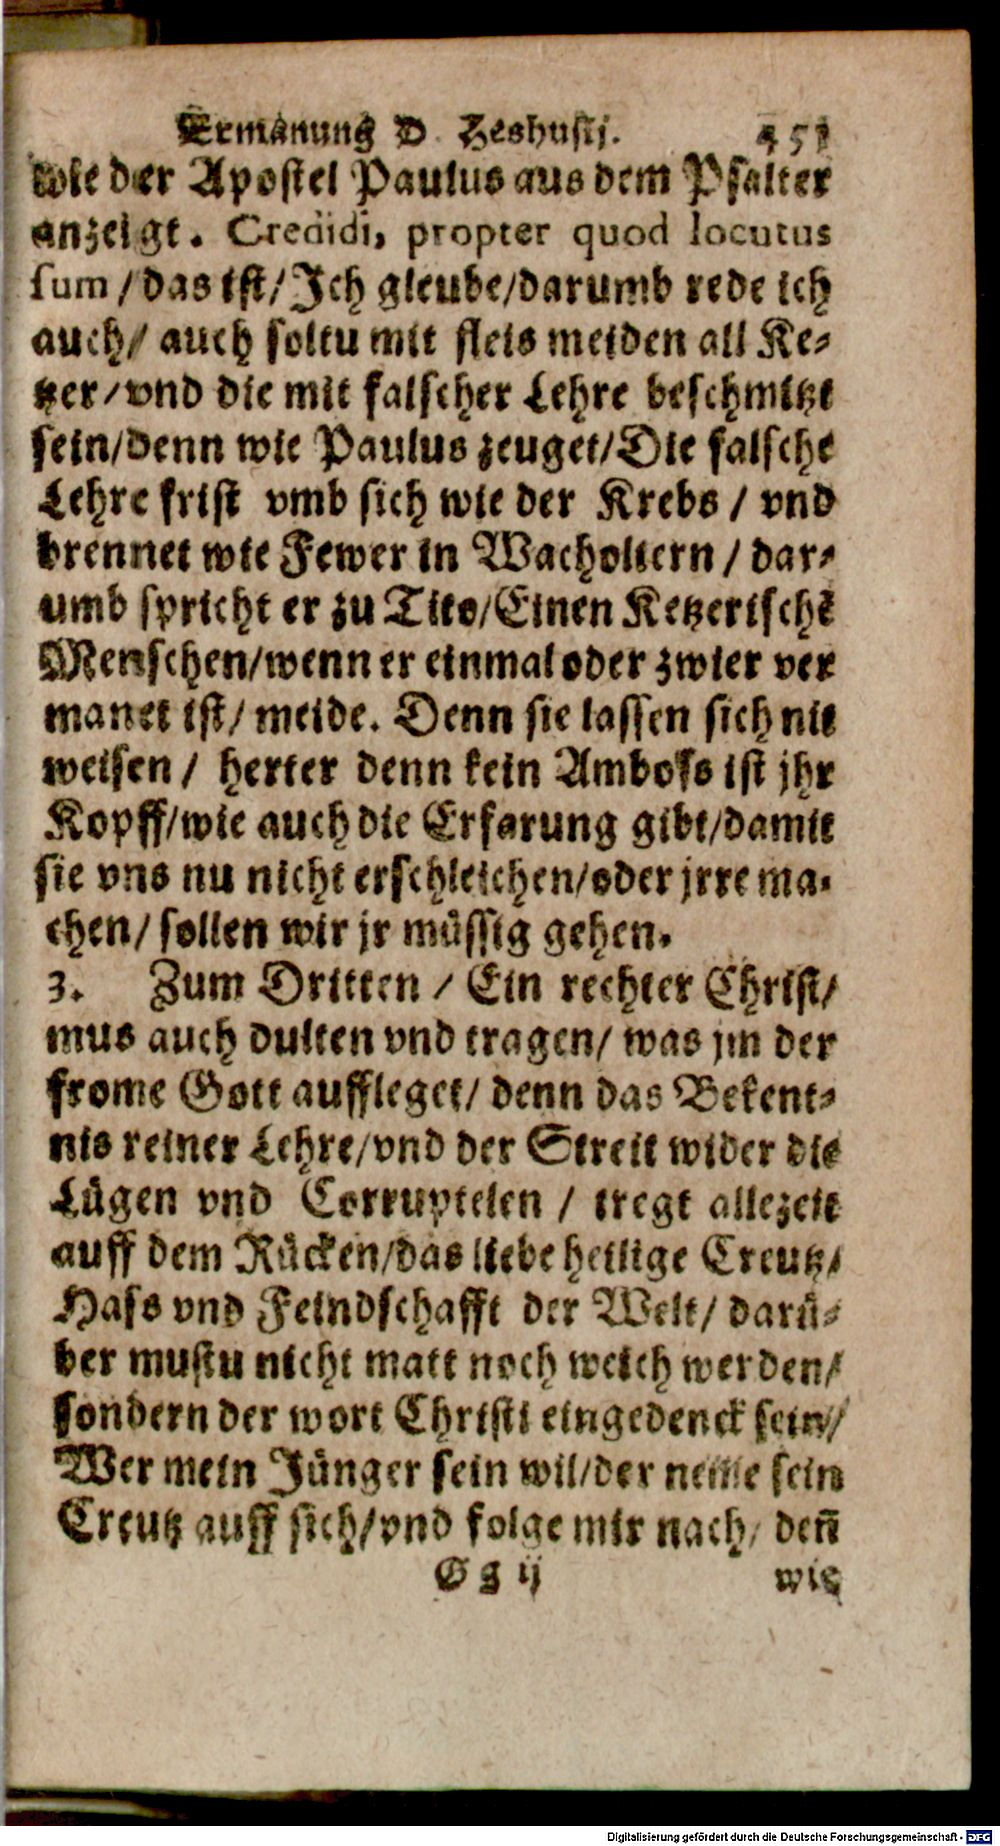 Ermanung D. Heshusij. 451
wie der Apostel Paulus aus dem Psalter
anzeigt. Credidi, propter quod locutus
sum / das ist / Ich gleube / darumb rede ich
auch / auch soltu mit fleis meiden all Ke-
tzer / vnd die mit falscher Lehre beschmitzt
sein / denn wie Paulus zeuget / Die falsche
Lehre frist vmb sich wie der Krebs / vnd
brennet wie Fewer in Wacholtern / dar-
umb spricht er zu Tito / Einen Ketzerischē
Menschen / wenn er einmal oder zwier ver
manet ist / meide. Denn sie lassen sich nit
weisen / herter denn kein Amboss ist jhr
Kopff / wie auch die Erfarung gibt / damit
sie vns nu nicht erschleichen / oder jrre ma-
chen / sollen wir jr müssig gehen.
3. Zum Dritten / Ein rechter Christ /
mus auch dulten vnd tragen / was jm der
frome Gott auffleget / denn das Bekent-
nis reiner Lehre / vnd der Streit wider die
Lügen vnd Corruptelen / tregt allezeit
auff dem Rücken / das liebe heilige Creutz /
Hass vnd Feindschafft der Welt / darü-
ber mustu nicht matt noch weich werden /
sondern der wort Christi eingedenck sein /
Wer mein Jünger sein wil / der neme sein
Creutz auff sich / vnd folge mir nach / deñ
G g ij wie
Digitalisierung gefördert durch die Deutsche Forschungsgemeinschaft - DFG